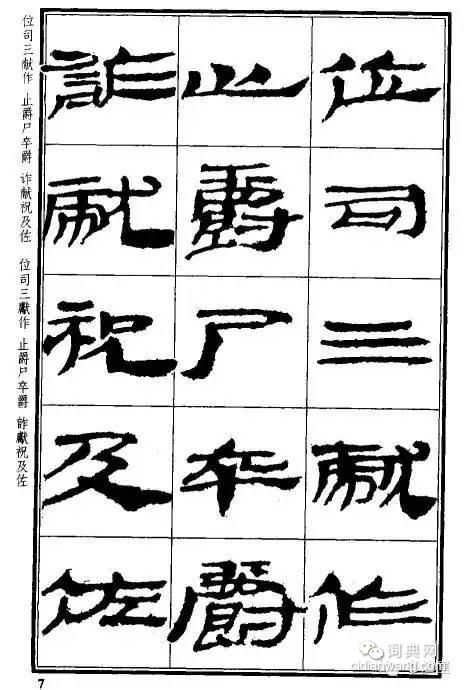 位司三獻作
止爵尸卒爵
詐獻祝及佐
位司三献作 止爵尸卒爵 诈献祝及佐 位司三獻作 止爵尸卒爵 詐獻祝及佐
7
词典网
cidianwang.com